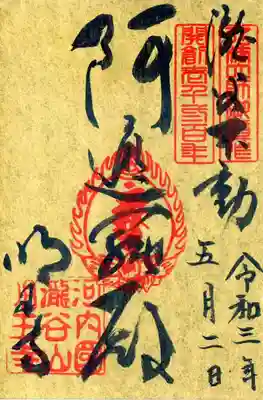 瀧谷不動
令和三年
五月二日
開創壱千弐百年
阿遮 殿
明王寺
河内國
瀧谷山
明王寺